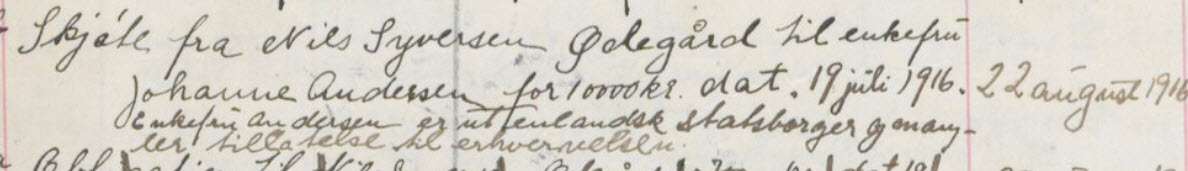 Skjøte fra Nils Syversen Ødegård til enkefrú
Johanne Andersen for 10000 kr. dat. 19 júli 1916. 22 aúgúst 1916
Enkefrú Andersen er útenlandsk statsborger og mang-
ler tillatelse til erhvervelsen.